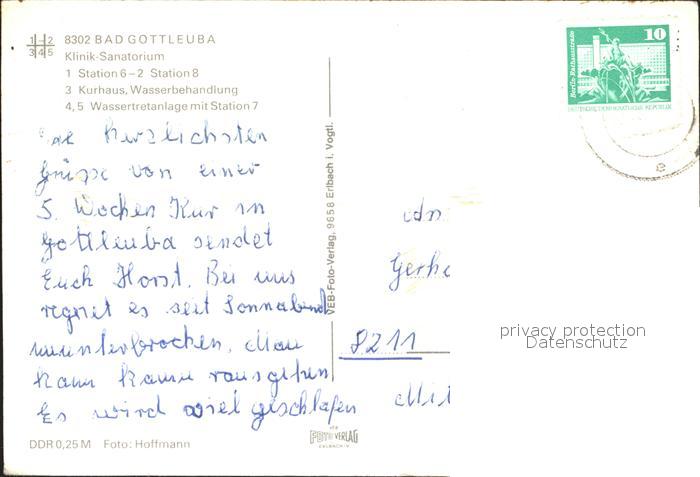 1-2
345
8302 BAD GOTTLEUBA
Klinik-Sanatorium
1 Station 6–2 Station 8
3 Kurhaus, Wasserbehandlung
4, 5 Wassertretanlage mit Station 7
Die herzlichsten
Grüße von einer
5. Wochen Kur in
Gottleuba sendet
Euch Horst. Bei uns
regnet es seit Sonnabend
ununterbrochen. Man
kann kaum rausgehen
Es wird viel geschlafen
DDR 0,25 M Foto: Hoffmann
VEB-Foto-Verlag, 9658 Erlbach i. Vogtl.
VEB
FOTO VERLAG
ERLBACH-V.
10
Berlin, Rathausstraße
DEUTSCHE DEMOKRATISCHE REPUBLIK
e
An
Gerha
8211
Mit
privacy protection
Datenschutz